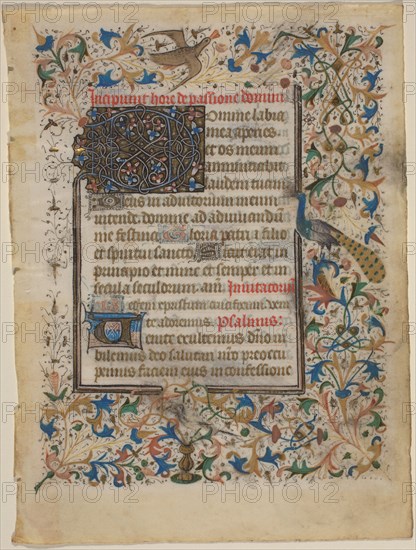 Incipiunt hore de passione domini
Domine labia
mea aperies
et os meum
annuntiabit
laudem tuam
Deus in adiutorium meum
intende domine ad adiuuandū
me festina Gloria patri et filio
et spiritui sancto Sicut erat in
principio et nunc et semper et in
secula seculorum. am̄. Inuitatoriū
Regem xpristum crucifixum Veni
te adoremus. Psalmus.
Venite exultemus dn̄o iu
bilemus deo salutari nr̄o preoccu
pemus faciem eius in confessione